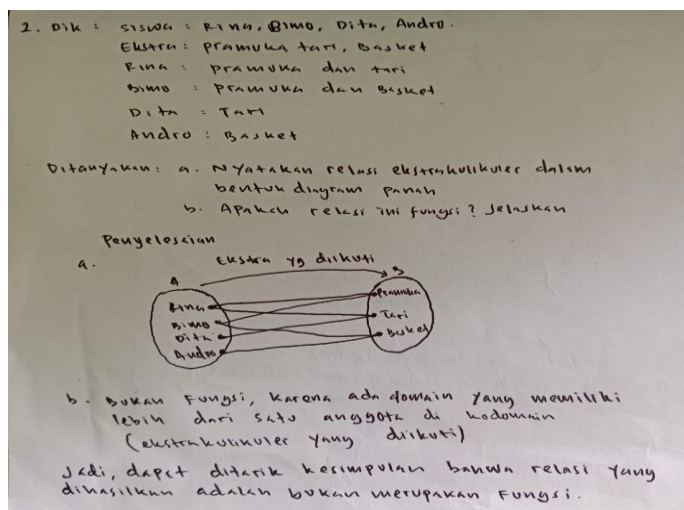 2. Dik : siswa : Rina, Bimo, Dita, Andro.
Ekstra : pramuka tari, Basket
Rina : pramuka dan tari
Bimo : pramuka dan Basket
Dita : Tari
Andro : Basket
Ditanyakan : a. Nyatakan relasi ekstrakulikuler dalam
bentuk diagram panah
b. Apakah relasi ini fungsi ? Jelaskan
Penyelesaian
a.
Ekstra yg diikuti
A
B
Rina
Bimo
Dita
Andro
Pramuka
Tari
Basket
b. Bukan Fungsi, karena ada domain yang memiliki
lebih dari satu anggota di kodomain
(ekstrakulikuler yang diikuti)
Jadi, dapat ditarik kesimpulan bahwa relasi yang
dihasilkan adalah bukan merupakan Fungsi.